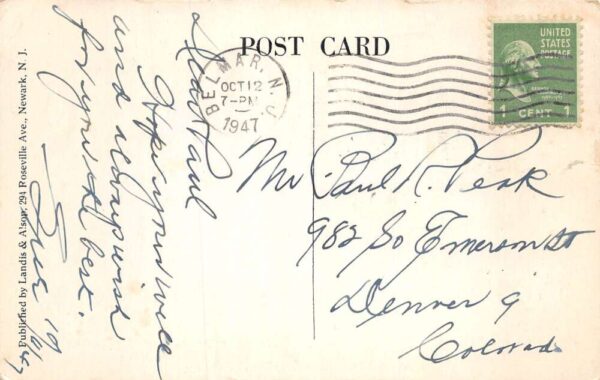 POST CARD
BELMAR, N.J.
OCT 12
7-PM
1947
UNITED
STATES
POSTAGE
1 CENT 1
Dear Paul
Hope you're well
and always wish
for you the best.
10/12/47
Mr Paul R. Peak
982 So Emerson St
Denver 9
Colorado
Published by Landis & Alsop, 294 Roseville Ave., Newark, N. J.